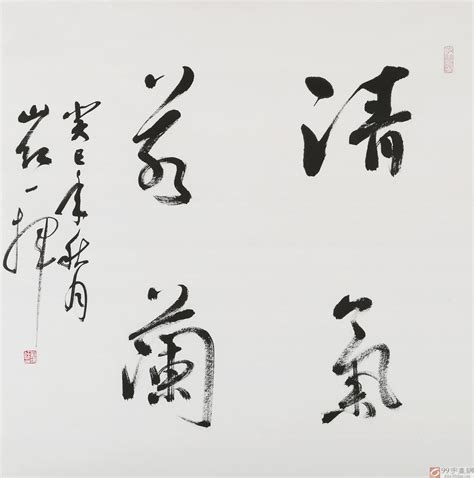 清氣
若蘭
癸巳年秋月
一揮
99字畫網